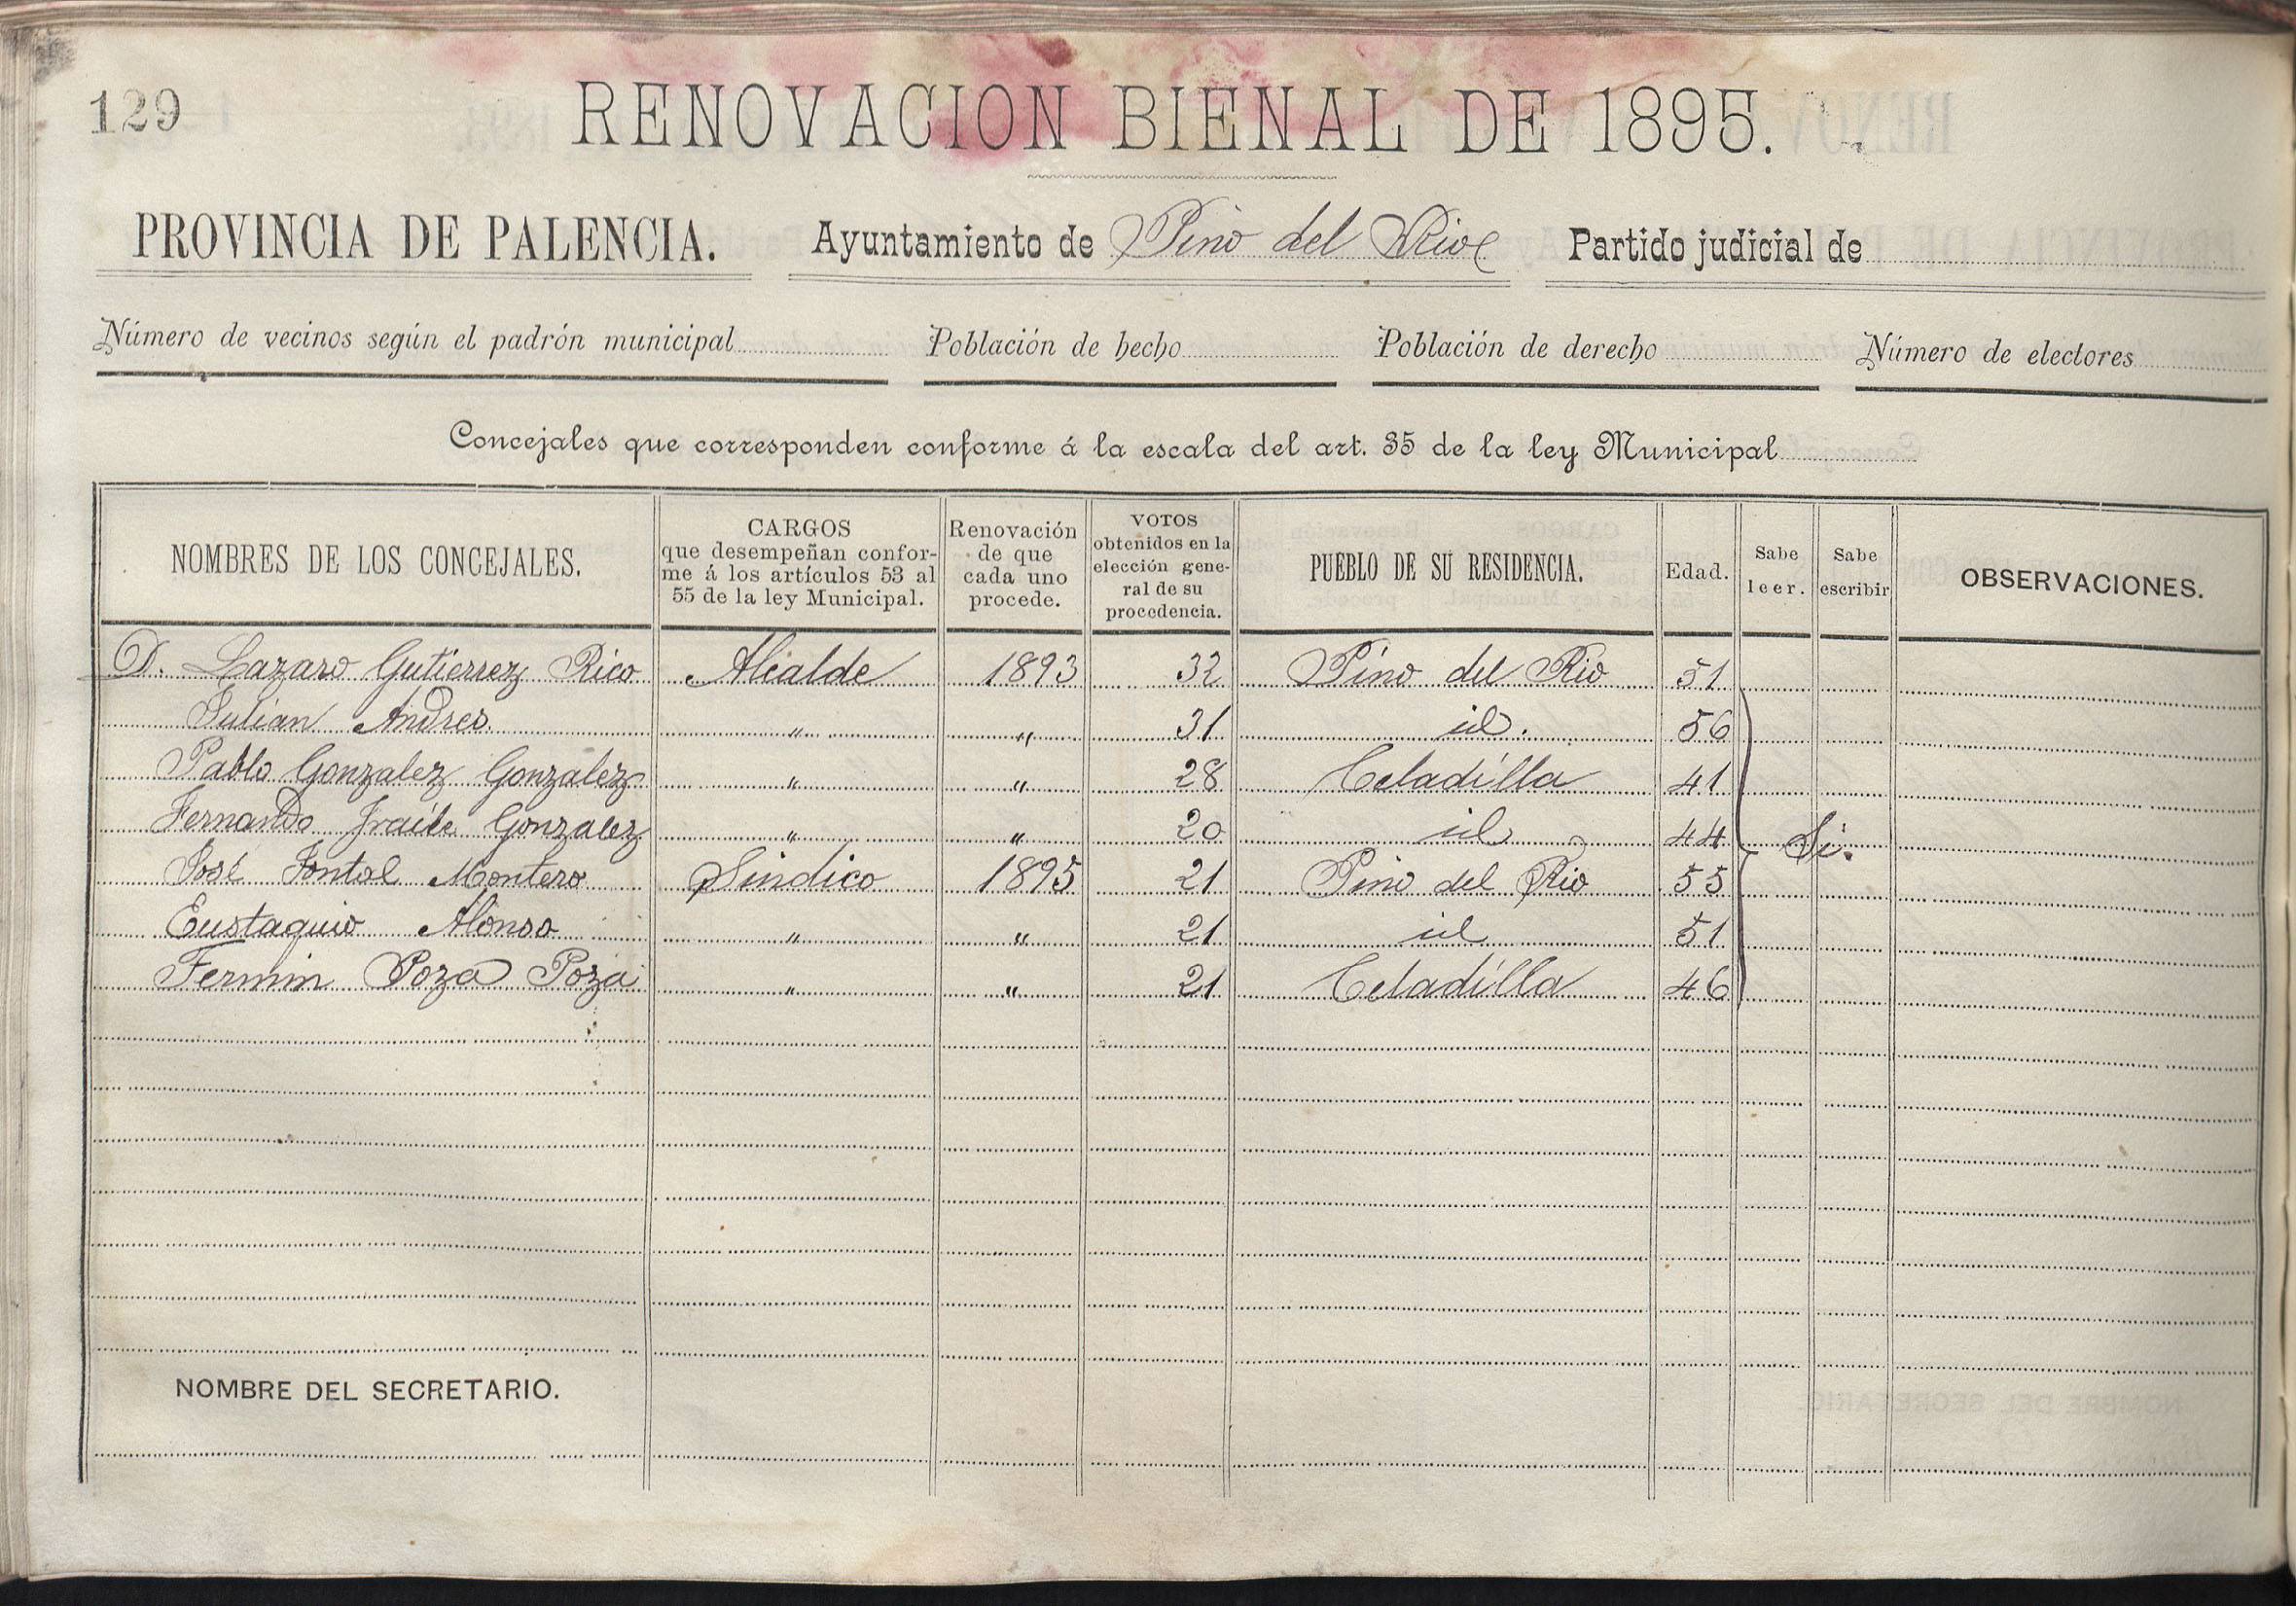 129
RENOVACION BIENAL DE 1895.
PROVINCIA DE PALENCIA. Ayuntamiento de Pino del Rio Partido judicial de
Número de vecinos según el padrón municipal Población de hecho Población de derecho Número de electores
Concejales que corresponden conforme á la escala del art. 35 de la ley Municipal
NOMBRES DE LOS CONCEJALES.
CARGOS
que desempeñan confor-
me á los artículos 53 al
55 de la ley Municipal.
Renovación
de que
cada uno
procede.
VOTOS
obtenidos en la
elección gene-
ral de su
procedencia.
PUEBLO DE SU RESIDENCIA.
Edad.
Sabe
leer.
Sabe
escribir
OBSERVACIONES.
D. Lazaro Gutierrez Rico Alcalde 1893 32 Pino del Rio 51
Julian Andres " " 31 id. 56
Pablo Gonzalez Gonzalez " " 28 Celadilla 41
Fernando Fraile Gonzalez " " 20 id 44 Si.
José Fontal Montero Sindico 1895 21 Pino del Rio 55
Eustaquio Alonso " " 21 id 51
Fermin Poza Poza " " 21 Celadilla 46
NOMBRE DEL SECRETARIO.